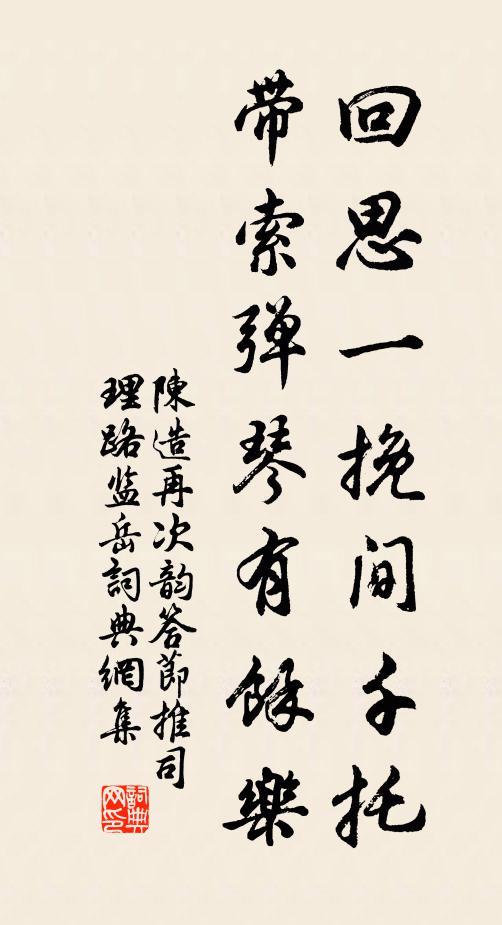 回思一挽间千托
带索弹琴有餘樂
陳造再次韵答節推司
理路监岳詞典網集
詞典网印